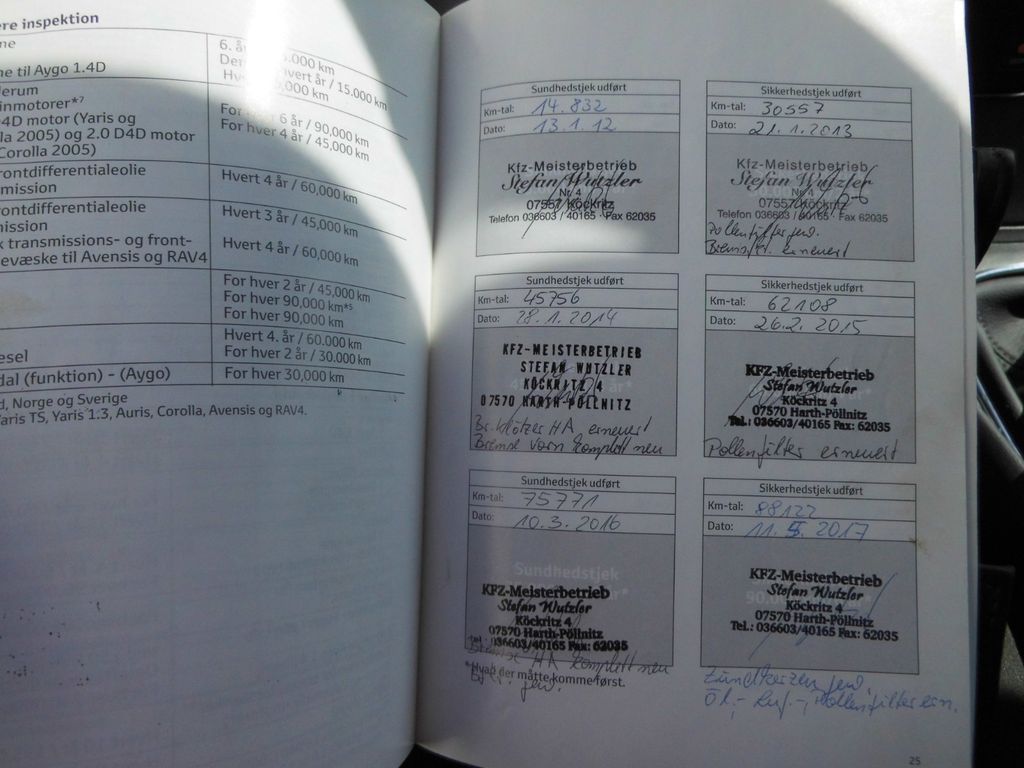 ere inspektion
ne
6. år
.000 km
ne til Aygo 1.4D
vert år / 15.000 km
,000 km
lerum
inmotorer*7
4D motor (Yaris og
la 2005) og 2.0 D4D motor
Corolla 2005)
For 6 år / 90,000 km
For hver 4 år / 45,000 km
rontdifferentialeolie
mission
Hvert 4 år / 60,000 km
rontdifferentialeolie
mission
Hvert 3 år / 45,000 km
x transmissions- og front-
evæske til Avensis og RAV4
Hvert 4 år / 60,000 km
For hver 2 år / 45,000 km
For hver 90,000 km*5
For hver 90,000 km
Hvert 4. år / 60.000 km
esel
For hver 2 år / 30.000 km
dal (funktion) - (Aygo)
For hver 30,000 km
d, Norge og Sverige
Yaris TS, Yaris 1.3, Auris, Corolla, Avensis og RAV4.
Sundhedstjek udført
Km-tal: 14.832
Dato: 13.1.12
Kfz-Meisterbetrieb
Stefan Wutzler
Nr. 4
07557 Köckritz
Telefon 036603 / 40165 Fax 62035
Sikkerhedstjek udført
Km-tal: 30557
Dato: 21.1.2013
Kfz-Meisterbetrieb
Stefan Wutzler
Nr. 4
07557 Köckritz
Telefon 036603 / 40165 Fax 62035
Pollenfilter gew.
erneuert
Sundhedstjek udført
Km-tal: 45756
Dato: 28.1.2014
KFZ-MEISTERBETRIEB
STEFAN WUTZLER
KÖCKRITZ 4
07570 HARTH-PÖLLNITZ
Br.klötzer HA erneuert
Bremse vorn komplett neu
Sikkerhedstjek udført
Km-tal: 62108
Dato: 26.2.2015
KFZ-Meisterbetrieb
Stefan Wutzler
Köckritz 4
07570 Harth-Pöllnitz
Tel.: 036603/40165 Fax: 62035
Pollenfilter erneuert
Sundhedstjek udført
Km-tal: 75771
Dato: 10.3.2016
Sundhedstjek
KFZ-Meisterbetrieb
Stefan Wutzler
Köckritz 4
07570 Harth-Pöllnitz
Tel.: 036603/40165 Fax: 62035
Bremse HA komplett neu
*Hvad der måtte komme først.
gew.
Sikkerhedstjek udført
Km-tal: 88122
Dato: 11.5.2017
KFZ-Meisterbetrieb
Stefan Wutzler
Köckritz 4
07570 Harth-Pöllnitz
Tel.: 036603/40165 Fax: 62035
Zündkerzen gew.
Öl-, Luf-, Pollenfilter ern.
25